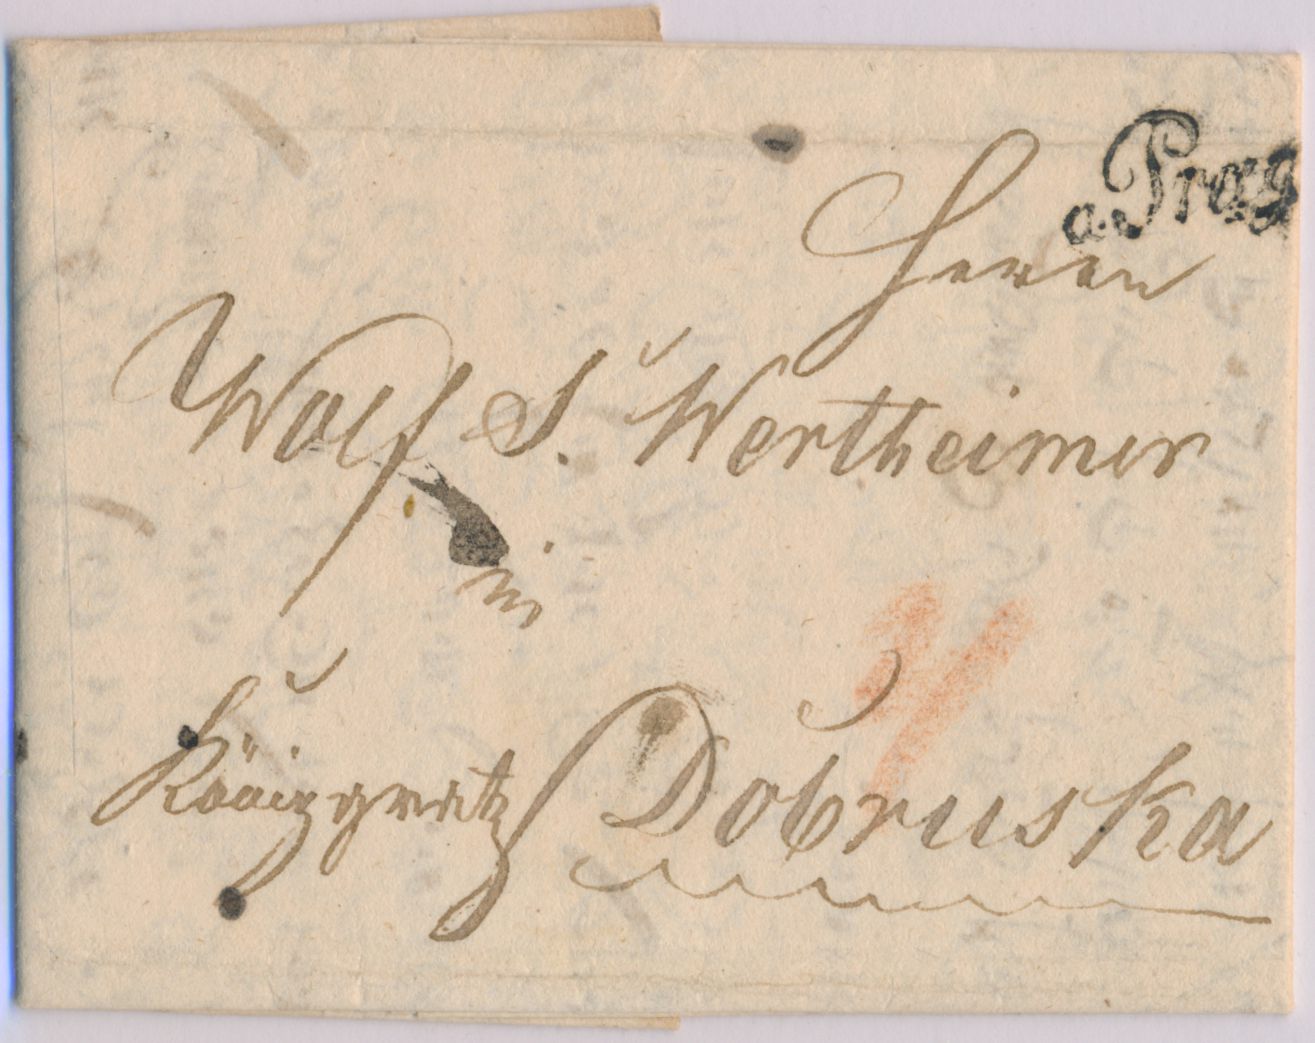 v. Prag
Herrn
Wolf S. Wertheimer
in
Königgrätz / Dobruska